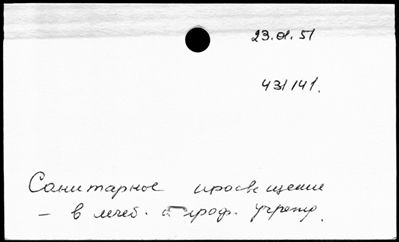 23.01.51
431141.
Санитарное просвещение
– в лечеб. и проф. учреж.